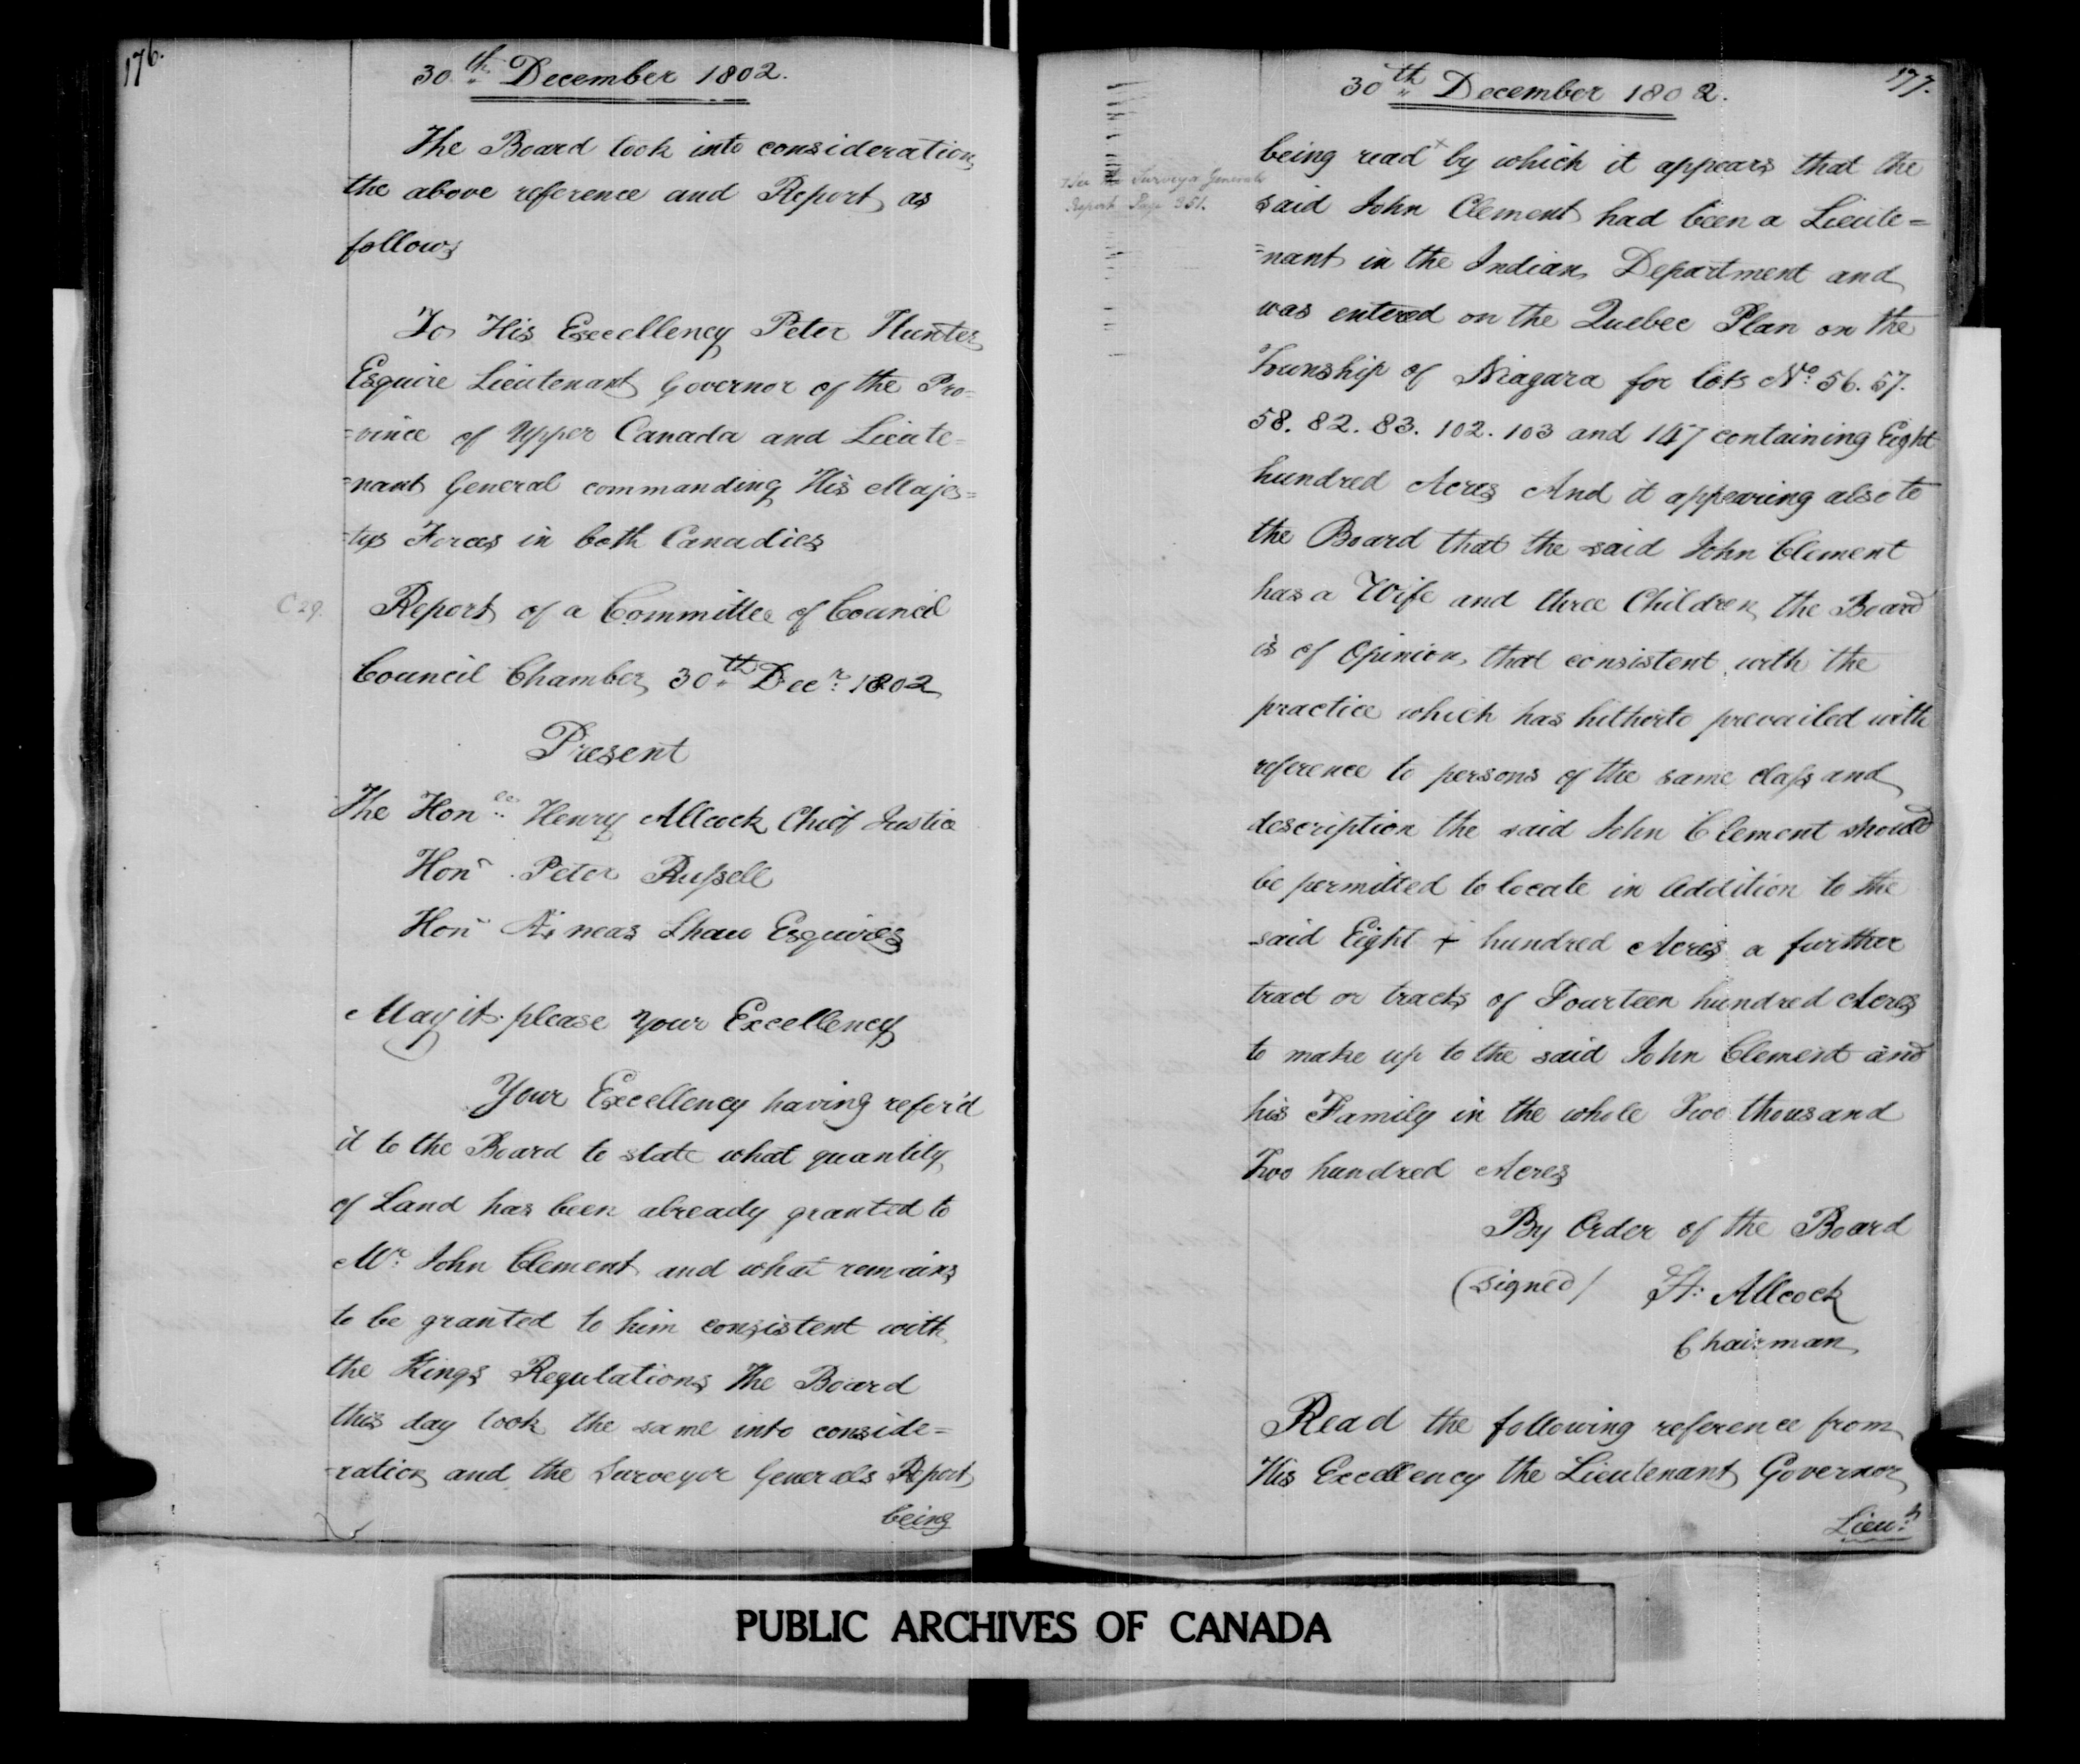 176.
30th December 1802.
The Board took into consideration
the above reference and Report as
follows
To His Excellency Peter Hunter
Esquire Lieutenant Governor of the Pro=
=vince of Upper Canada and Lieute=
=nant General commanding His Majes=
=tys Forces in both Canadies
C 29.
Report of a Committee of Council
Council Chamber 30th Decr 1802
Present
The Honble Henry Allcock Chief Justice
Hon Peter Russell
Hon Æneas Shaw Esquires
May it please Your Excellency
Your Excellency having refer'd
it to the Board to state what quantity
of Land has been already granted to
Mr. John Clement and what remains
to be granted to him consistent with
the Kings Regulations The Board
this day took the same into conside=
=ration and the Surveyor Generals Report
being
177.
30th December 1802.
+ See Surveyor Generals
Report Page 351.
being read + by which it appears that the
said John Clement had been a Lieute=
=nant in the Indian Department and
was entered on the Quebec Plan on the
Township of Niagara for lots No. 56. 57.
58. 82. 83. 102. 103 and 147 containing Eight
hundred Acres And it appearing also to
the Board that the said John Clement
has a Wife and three Children the Board
is of Opinion that consistent with the
practice which has hitherto prevailed with
reference to persons of the same class and
description the said John Clement should
be permitted to locate in addition to the
said Eight + hundred Acres a further
tract or tracts of Fourteen hundred Acres
to make up to the said John Clement and
his Family in the whole Two thousand
Two hundred Acres
By Order of the Board
(signed) H. Allcock
Chairman
Read the following reference from
His Excellency the Lieutenant Governor
Lieut
PUBLIC ARCHIVES OF CANADA